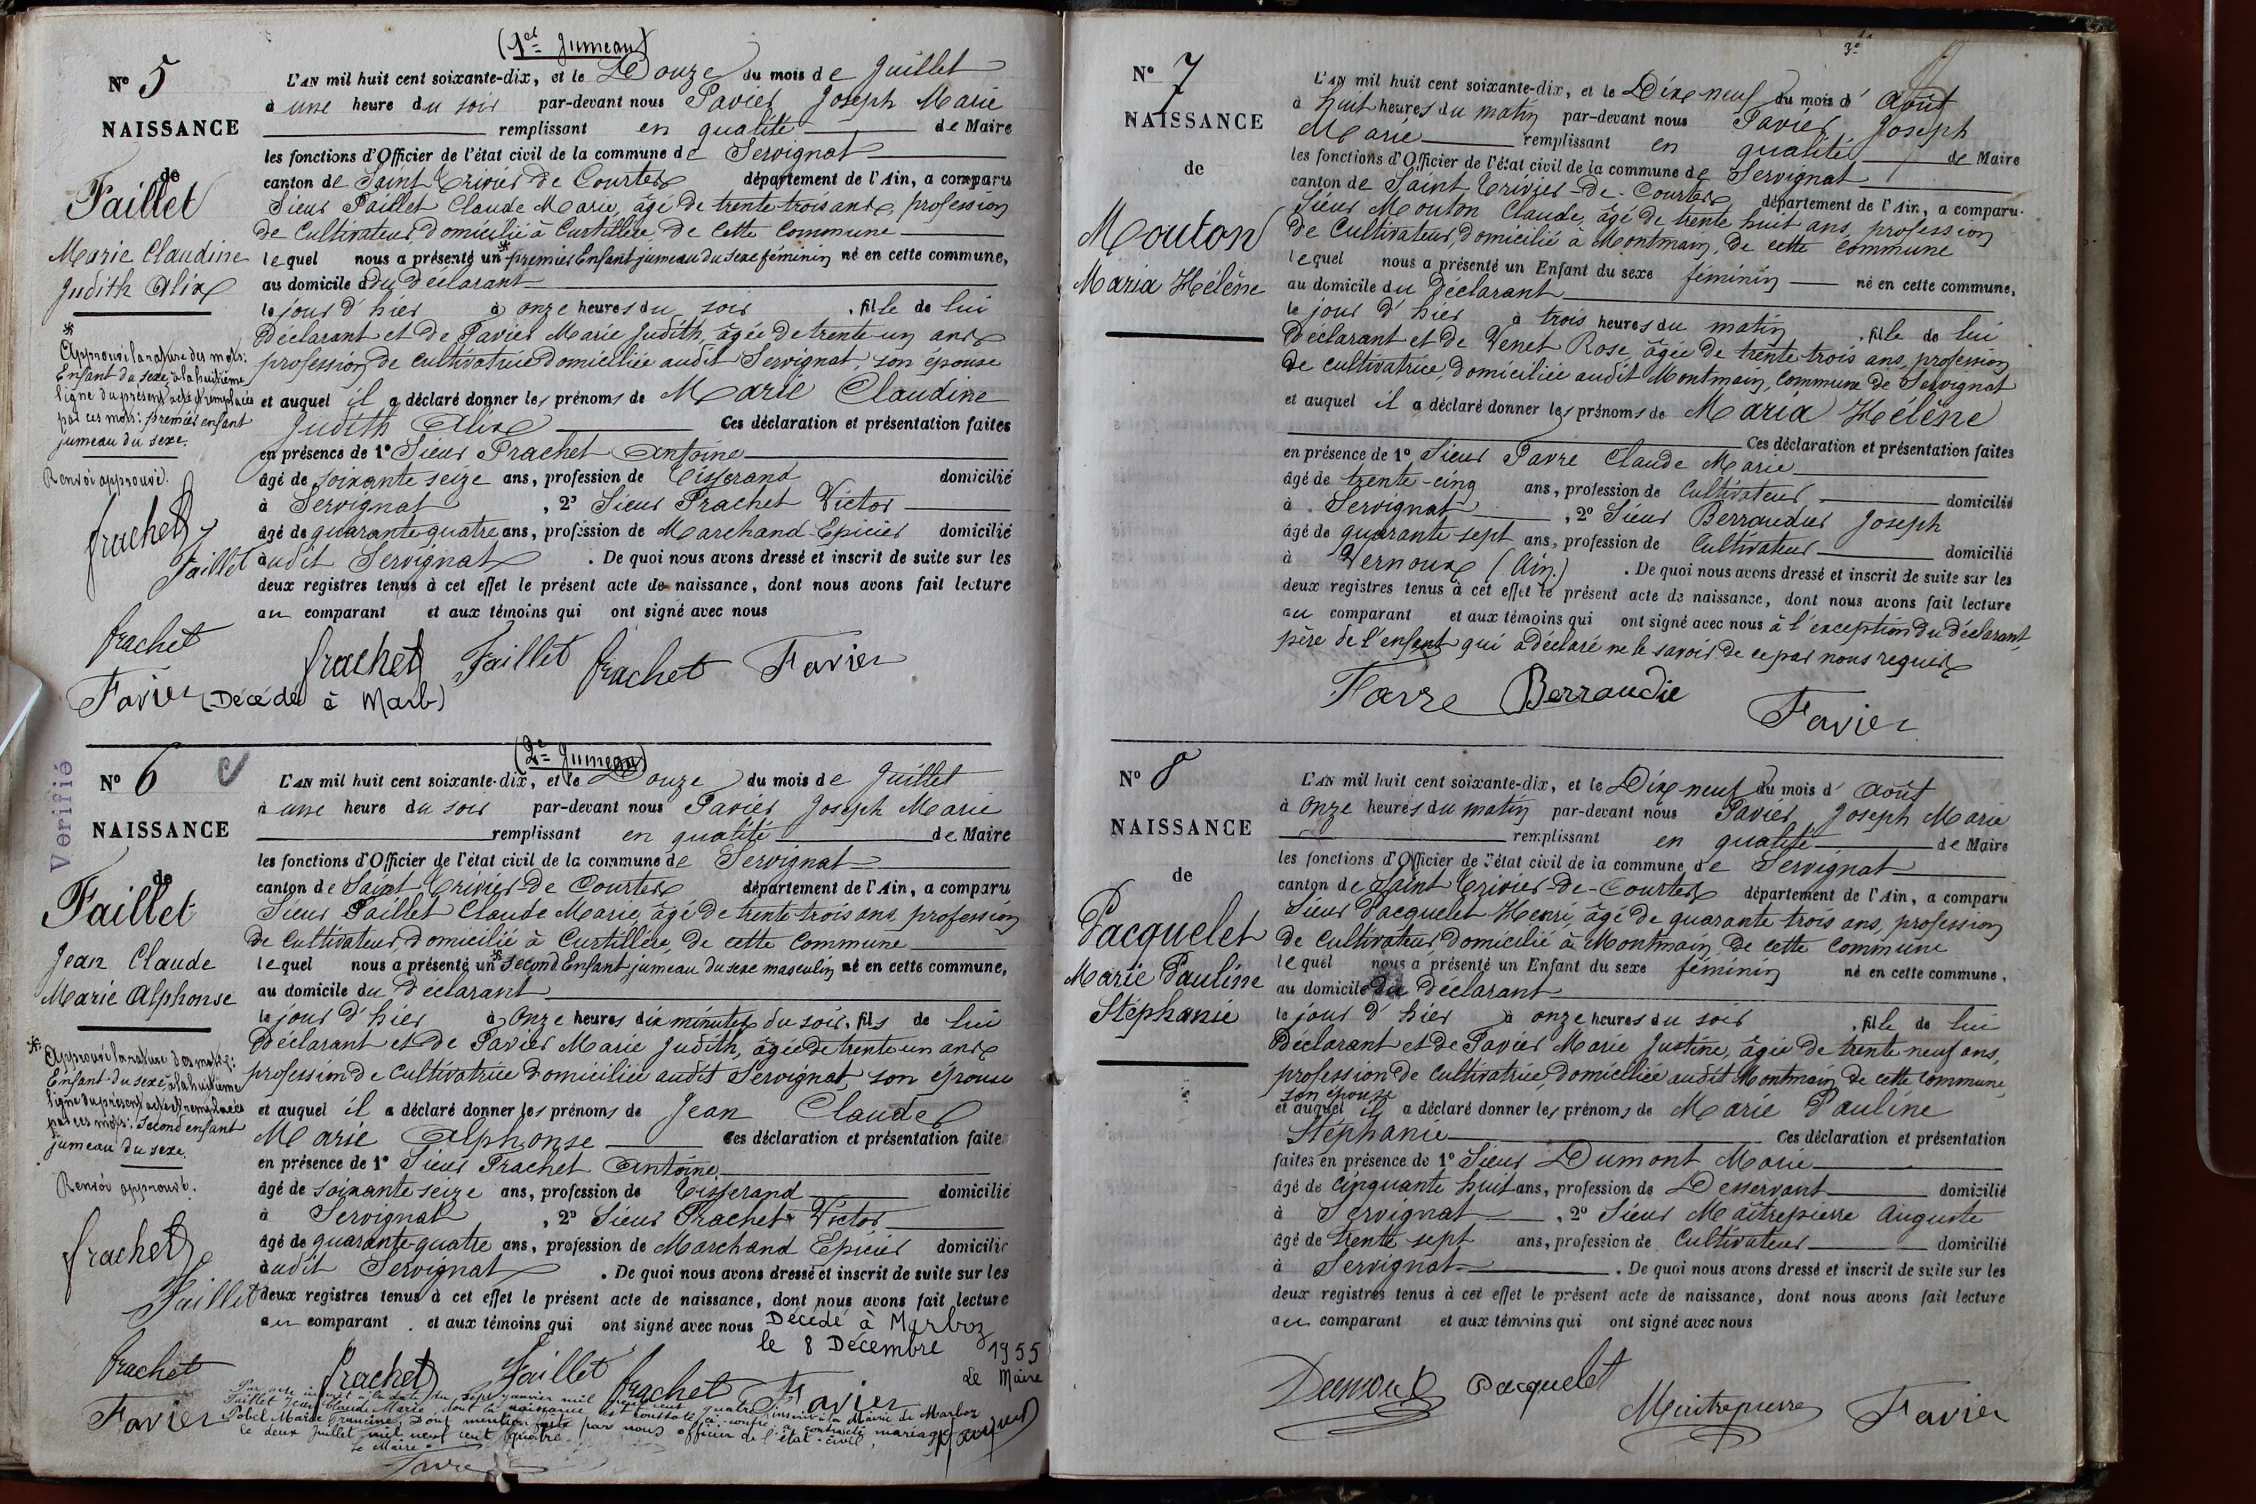 (1er Jumeau)
N° 5
NAISSANCE
de
Faillet
Marie Claudine
Judith Alix
L'AN mil huit cent soixante-dix, et le Douze du mois de Juillet
à une heure du soir par-devant nous Favier Joseph Marie
remplissant en qualité de Maire
les fonctions d'Officier de l'état civil de la commune de Servignat
canton de Saint Trivier de Courtes département de l'Ain, a comparu
Sieur Faillet Claude Marie, âgé de trente trois ans, profession
de Cultivateur, domicilié à Curtillère, de cette Commune
lequel nous a présenté un * premier Enfant jumeau du sexe féminin né en cette commune,
au domicile du Déclarant
le jour d'hier à onze heures du soir, fille de lui
Déclarant et de Favier Marie Judith, âgée de trente un ans
profession de cultivatrice domiciliée audit Servignat, son épouse
et auquel il a déclaré donner les prénoms de Marie Claudine
Judith Alix Ces déclaration et présentation faites
en présence de 1° Sieur Frachet Antoine
âgé de soixante seize ans, profession de Tisserand domicilié
à Servignat, 2° Sieur Frachet Victor
âgé de quarante quatre ans, profession de Marchand Epicier domicilié
audit Servignat. De quoi nous avons dressé et inscrit de suite sur les
deux registres tenus à cet effet le présent acte de naissance, dont nous avons fait lecture
au comparant et aux témoins qui ont signé avec nous
* Approuvé la rature des mots:
Enfant du sexe, à la huitième
ligne du présent acte, et remplacés
par ces mots: premier enfant
jumeau du sexe.
Renvoi approuvé.
frachet
Faillet
frachet
Favier
frachet Faillet frachet Favier
(Décédé à Marb)
Verifié
(2e Jumeau)
N° 6
NAISSANCE
de
Faillet
Jean Claude
Marie Alphonse
L'AN mil huit cent soixante-dix, et le Douze du mois de Juillet
à une heure du soir par-devant nous Favier Joseph Marie
remplissant en qualité de Maire
les fonctions d'Officier de l'état civil de la commune de Servignat
canton de Saint Trivier de Courtes département de l'Ain, a comparu
Sieur Faillet Claude Marie, âgé de trente trois ans, profession
de Cultivateur, domicilié à Curtillère, de cette Commune
lequel nous a présenté un * Second Enfant jumeau du sexe masculin né en cette commune,
au domicile du Déclarant
le jour d'hier à Onze heures dix minutes du soir, fils de lui
Déclarant et de Favier Marie Judith, âgée de trente un ans
profession de Cultivatrice domiciliée audit Servignat, son épouse
et auquel il a déclaré donner les prénoms de Jean Claude
Marie Alphonse Ces déclaration et présentation faites
en présence de 1° Sieur Frachet Antoine
âgé de soixante seize ans, profession de Tisserand domicilié
à Servignat, 2° Sieur Frachet Victor
âgé de quarante-quatre ans, profession de Marchand Epicier domicilié
audit Servignat. De quoi nous avons dressé et inscrit de suite sur les
deux registres tenus à cet effet le présent acte de naissance, dont nous avons fait lecture
au comparant et aux témoins qui ont signé avec nous
* Approuvé la rature des mots:
Enfant du sexe, à la huitième
ligne du présent acte, et remplacés
par ces mots: Second enfant
jumeau du sexe.
Renvoi approuvé.
frachet
Faillet
frachet
Favier
Décédé à Marboz
le 8 Décembre 1955
Le Maire
frachet Faillet frachet Favier
Par acte inscrit à la date du sept janvier mil neuf cent quatre inscrit à la Mairie de Marboz
Faillet Jean Claude Marie, dont la naissance est constatée ci-contre a contracté mariage avec
Pobel Marie Francine, Dont mention faite par nous officier de l'état-civil,
le deux Juillet mil neuf cent quatre
Le Maire.
Favre
3e
N° 7
NAISSANCE
de
Mouton
Maria Hélène
L'AN mil huit cent soixante-dix, et le Dix neuf du mois d'Août
à huit heures du matin par-devant nous Favier Joseph
Marie remplissant en qualité de Maire
les fonctions d'Officier de l'état civil de la commune de Servignat
canton de Saint Trivier-de-Courtes département de l'Ain, a comparu
Sieur Mouton Claude, âgé de trente huit ans, profession
de Cultivateur, domicilié à Montmain, de cette commune
lequel nous a présenté un Enfant du sexe féminin né en cette commune,
au domicile du Déclarant
le jour d'hier à trois heures du matin, fille de lui
Déclarant et de Venet Rose, âgée de trente trois ans, profession
de cultivatrice, domiciliée audit Montmain, Commune de Servignat
et auquel il a déclaré donner les prénoms de Maria Hélène
Ces déclaration et présentation faites
en présence de 1° Sieur Favre Claude Marie
âgé de trente-cinq ans, profession de Cultivateur domicilié
à Servignat, 2° Sieur Berraudier Joseph
âgé de quarante-sept ans, profession de Cultivateur domicilié
à Vernoux (Ain.). De quoi nous avons dressé et inscrit de suite sur les
deux registres tenus à cet effet le présent acte de naissance, dont nous avons fait lecture
au comparant et aux témoins qui ont signé avec nous à l'exception du déclarant,
père de l'enfant qui a déclaré ne le savoir de ce par nous requis
Favre Berraudie Favier
N° 8
NAISSANCE
de
Pacquelet
Marie Pauline
Stéphanie
L'AN mil huit cent soixante-dix, et le Dix neuf du mois d'Août
à Onze heures du matin par-devant nous Favier Joseph Marie
remplissant en qualité de Maire
les fonctions d'Officier de l'état civil de la commune de Servignat
canton de Saint Trivier-de-Courtes département de l'Ain, a comparu
Sieur Pacquelet Henri, âgé de quarante trois ans, profession
de Cultivateur domicilié à Montmain, de cette Commune
lequel nous a présenté un Enfant du sexe féminin né en cette commune,
au domicile du Déclarant
le jour d'hier à onze heures du soir, fille de lui
Déclarant et de Favier Marie Justine, âgée de trente neuf ans,
profession de Cultivatrice, domiciliée audit Montmain, de cette commune,
son épouse
et auquel il a déclaré donner les prénoms de Marie Pauline
Stéphanie Ces déclaration et présentation
faites en présence de 1° Sieur Dumont Marie
âgé de cinquante huit ans, profession de Desservant domicilié
à Servignat, 2° Sieur Maîtrepierre Auguste
âgé de trente sept ans, profession de Cultivateur domicilié
à Servignat. De quoi nous avons dressé et inscrit de suite sur les
deux registres tenus à cet effet le présent acte de naissance, dont nous avons fait lecture
au comparant et aux témoins qui ont signé avec nous
Dumont Pacquelet Maitrepierre Favier